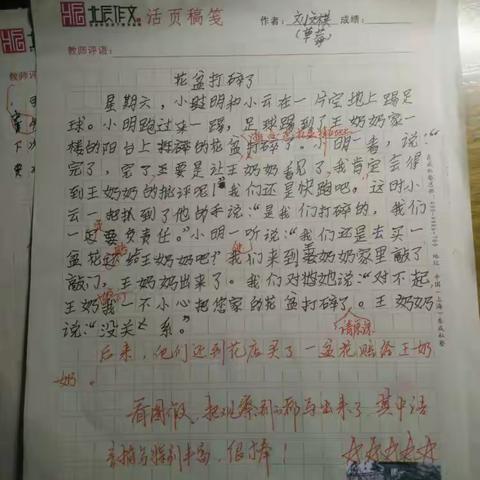 北辰作文 活页稿笺
作者: 成绩:
(草莓)
教师评语:
花盆打碎了
星期六,小聪明和小云在一片空地上踢足
球。小明跑过来一踢,足球踢到了王奶奶家一
楼的阳台上
打碎了。小明一看,说:“
完了,完了王要是让王奶奶看见了,我肯定会得
到王奶奶的批评呢!我们还是快跑吧。这时小
云一把抓到了他的手说:“是我们打碎的,我们
一定要负责任。”小明一听说:“我们还是去买一
盆花还给王奶奶吧?”我们来到王奶奶家里敲了
敲门,王奶奶出来了。我们对她说:“对不起,
王奶奶我一不小心把您家的花盆打碎了。王奶奶
说:“没关系。”
请原谅
后来,他们还到花店买了一盆花赔给王奶
奶。
看图作文,把观察到的都写出来了,其中语
言描写特别丰富,很棒!
教师评语